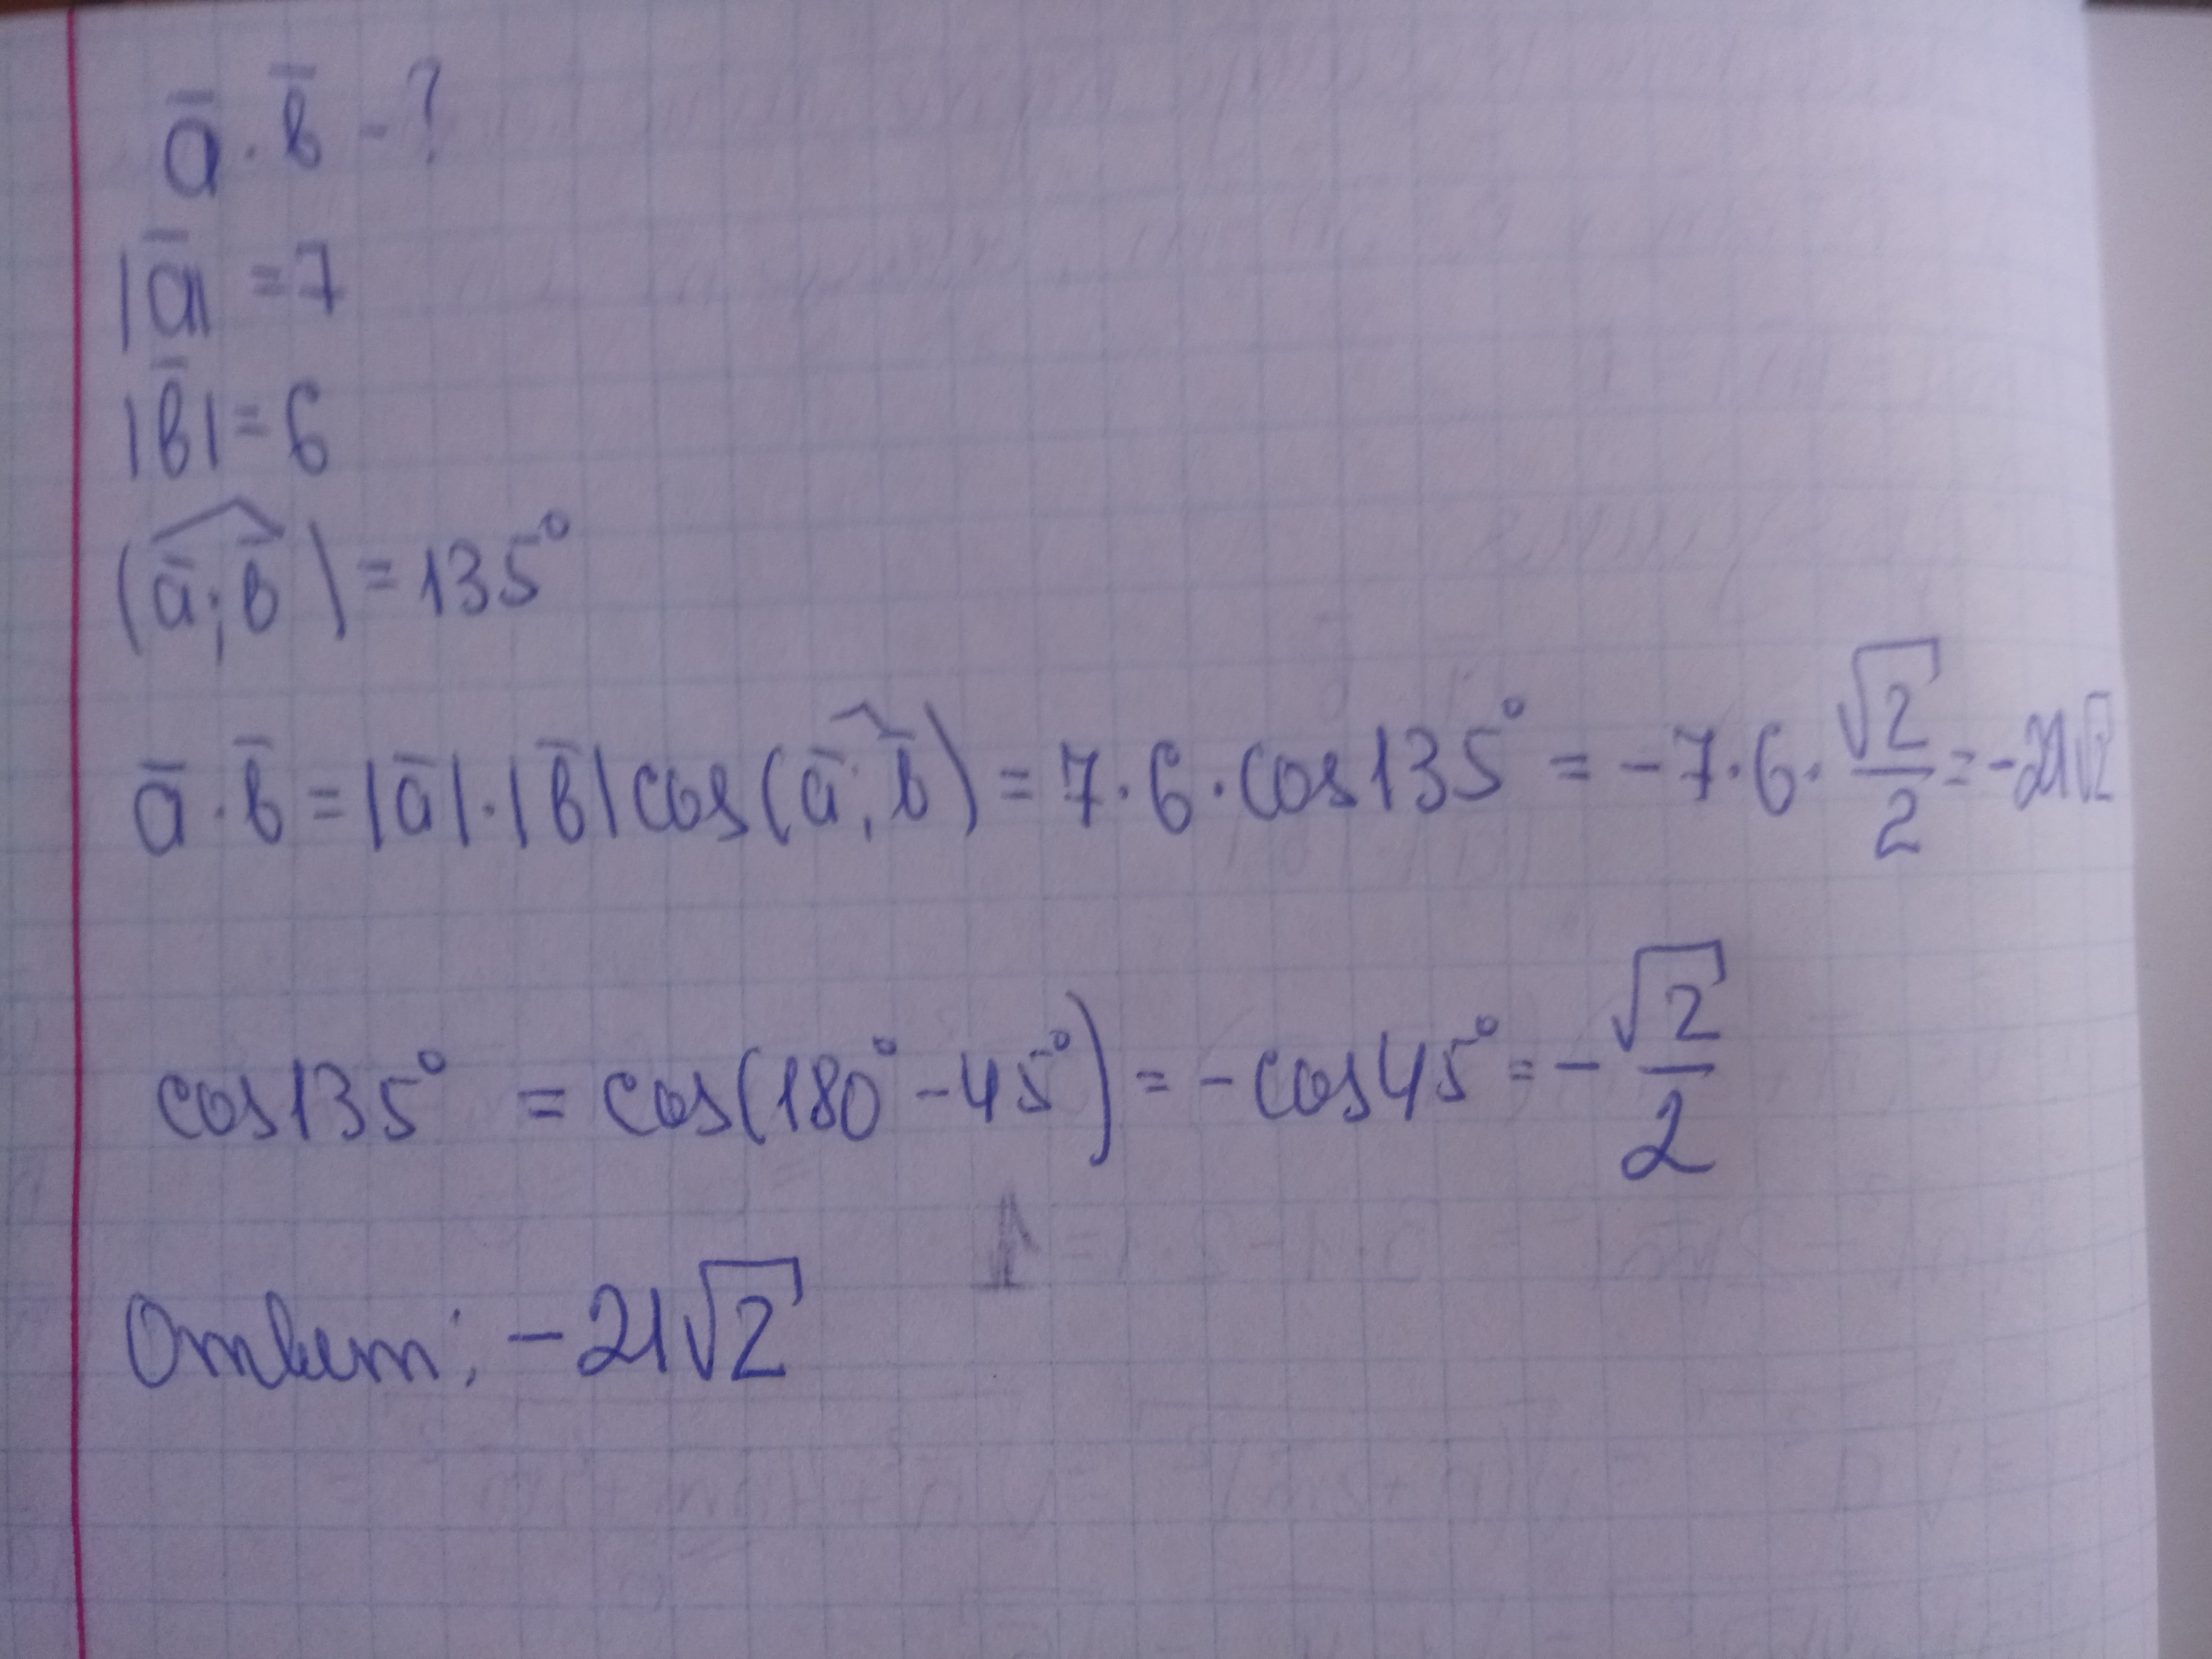 a̅ · b̅ - ?
|a̅| = 7
|b̅| = 6
(a̅; b̅) = 135°
a̅ · b̅ = |a̅| · |b̅| cos(a̅; b̅) = 7 · 6 · cos 135° = -7 · 6 · √2/2 = -21√2
cos 135° = cos(180° - 45°) = -cos 45° = -√2/2
Ответ: -21√2